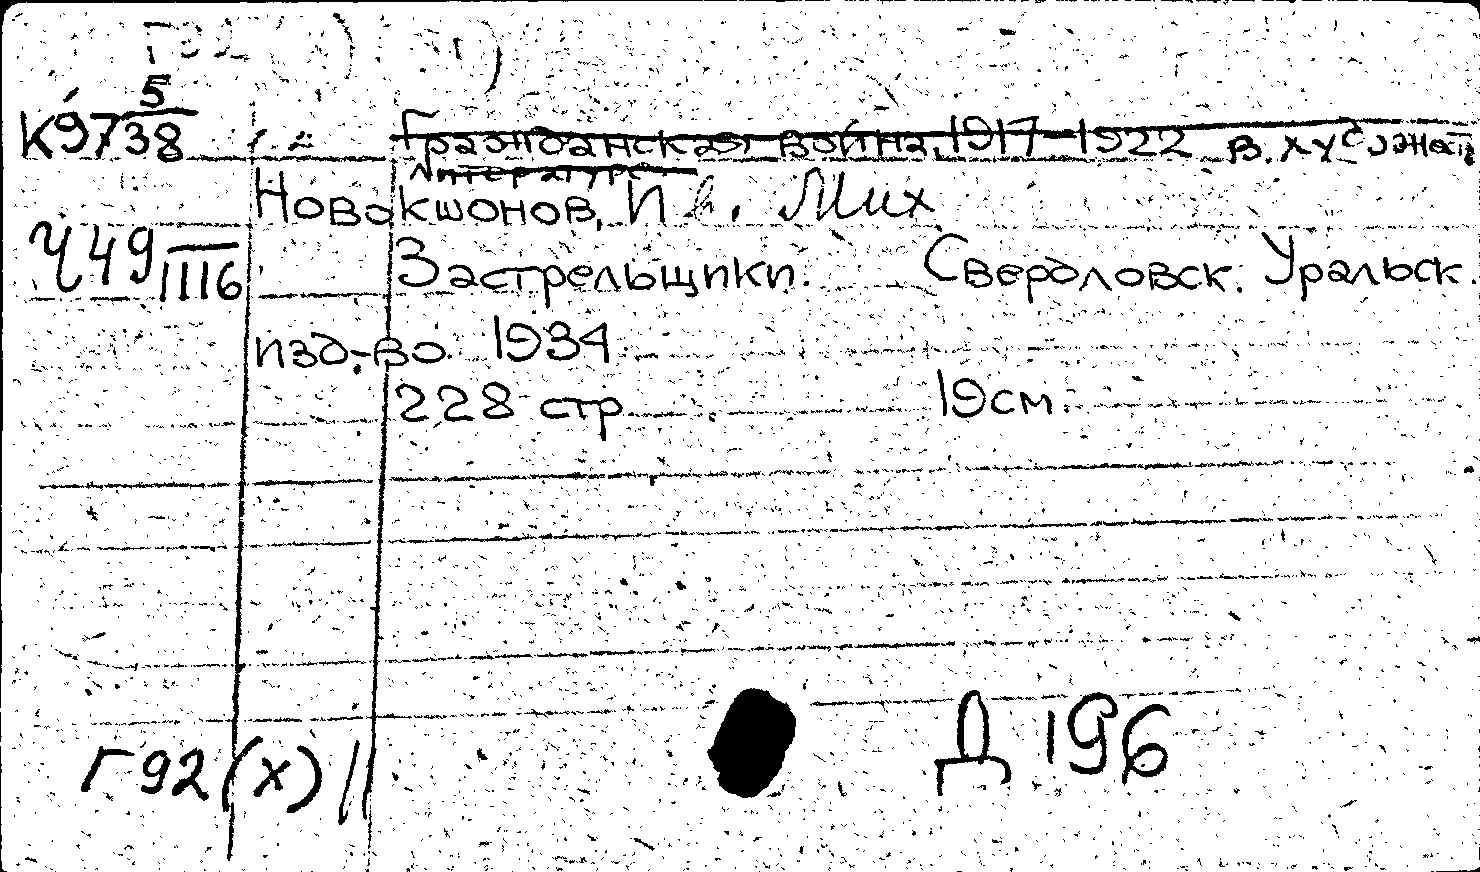 5
К 97 38
Гражданская война, 1917-1922 в худ
литература
Новокшонов, Ив. Мих.
Ч49 III 16
Застрельщики. Свердловск. Уральск.
изд-во 1934
228 стр 19 см.
Г 92 (х) Д 196